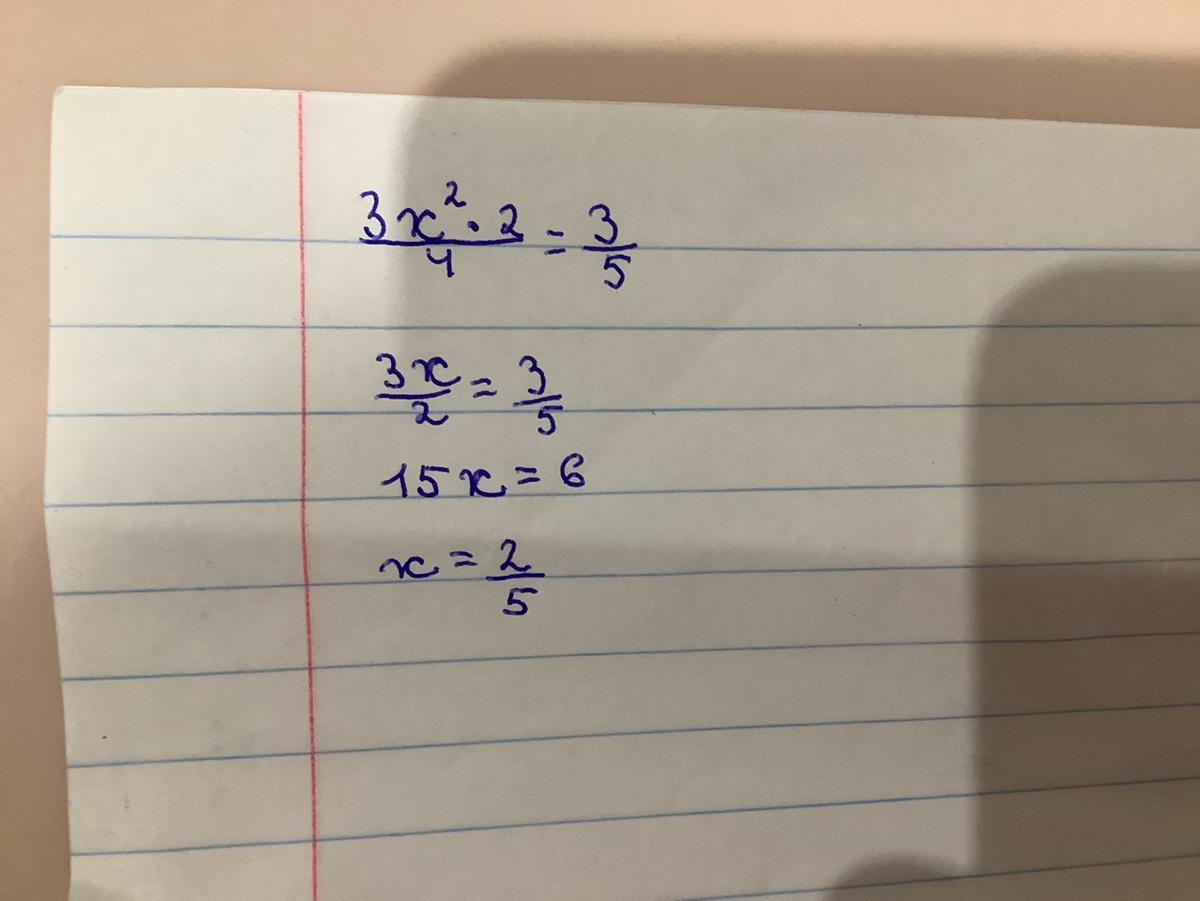 3x²·2/4 = 3/5
3x/2 = 3/5
15x = 6
x = 2/5